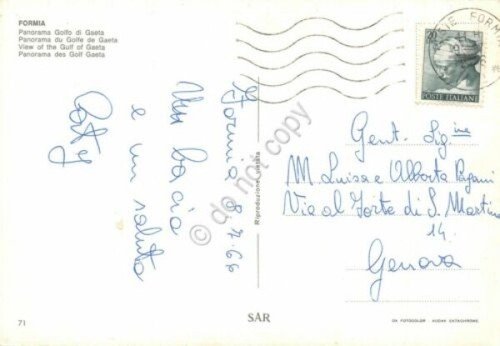 FORMIA
Panorama Golfo di Gaeta
Panorama du Golfe de Gaeta
View of the Gulf of Gaeta
Panorama des Golf Gaeta
FORMIA
POSTE ITALIANE
Formia 8.7.66
Un bacio
e un saluto
Gent. Sig.ine
M. Luisa e Alberta Pagani
Via al Forte di S. Martino
14.
Genova
Riproduzione vietata
do not copy
71
SAR
DA FOTOCOLOR KODAK EKTACHROME